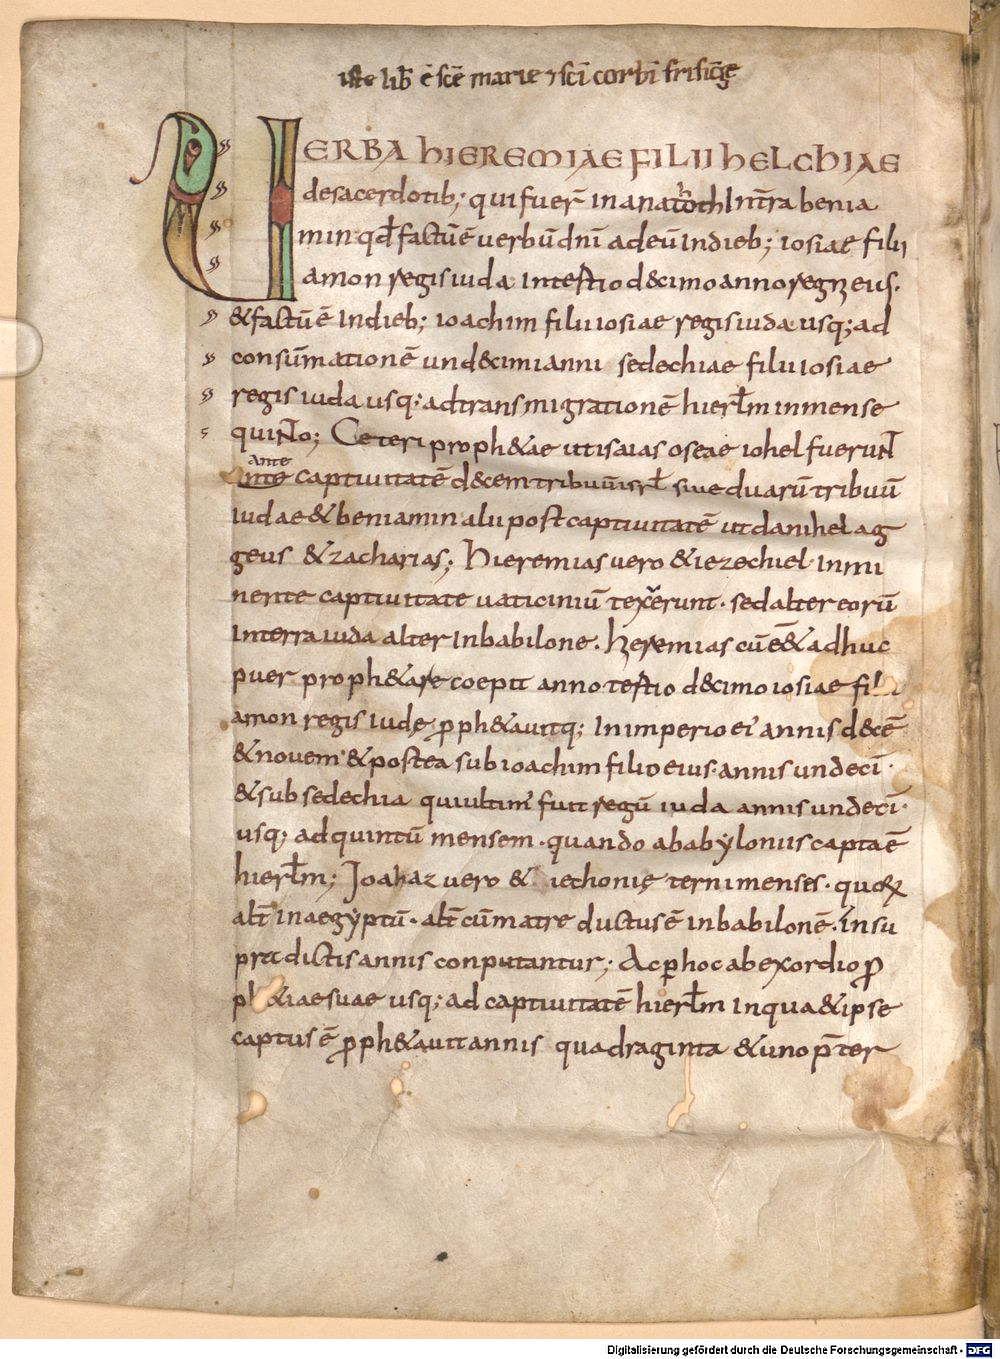 iste lib̄ ē sc̄e marie ⁊ sc̄i corbī frisīḡe
VERBA HIEREMIAE FILII HELCHIAE
de sacerdotib; qui fuer̄ in anatoth In t̄ra benia
min qd̄ factū ē uerbū dn̄i ad eū In dieb; iosiae filii
amon regis iuda In tertio decimo anno regni eius.
& factū ē In dieb; ioachim filii iosiae regis iuda usq; ad
consūmationē undecimi anni sedechiae filii iosiae
regis iuda usq; ad transmigrationē hierl̄m in mense
quinto; Ceteri proph&ae ut isaias oseae iohel fuerunt
Ante
ante captiuitatē decem tribuū isrl̄ siue duarū tribuū
iudae & beniamin alii post captiuitatē ut danihel ag
geus & zacharias; Hieremias uero & iezechiel inmi
nente captiuitate uaticiniū texerunt. sed alter eorū
In terra iuda alter In babilone. Hieremias cū e&̄ adhuc
puer proph&are coepit anno tertio decimo iosiae fili
amon regis iudę. pph&auitq; In imperio ei' annis decē
& novem & postea sub ioachim filio eius. annis undecī.
& sub sedechia qui ultim' fuit regū iuda annis undecī.
usq; ad quintū mensem. quando a babyloniis capta ē
hierl̄m; Joahaz uero & iechonię terni menses. quoꝝ
alt̄ in aegyptū. alt̄ cū matre ductus ē in babilonē. In su
pra dictis annis conputantur; Ac p hoc ab exordio p
ph&iae suae usq; ad captiuitatē hierl̄m In qua & ipse
captus ē pph&auit annis quadraginta & uno p̄ter
Digitalisierung gefördert durch die Deutsche Forschungsgemeinschaft - DFG